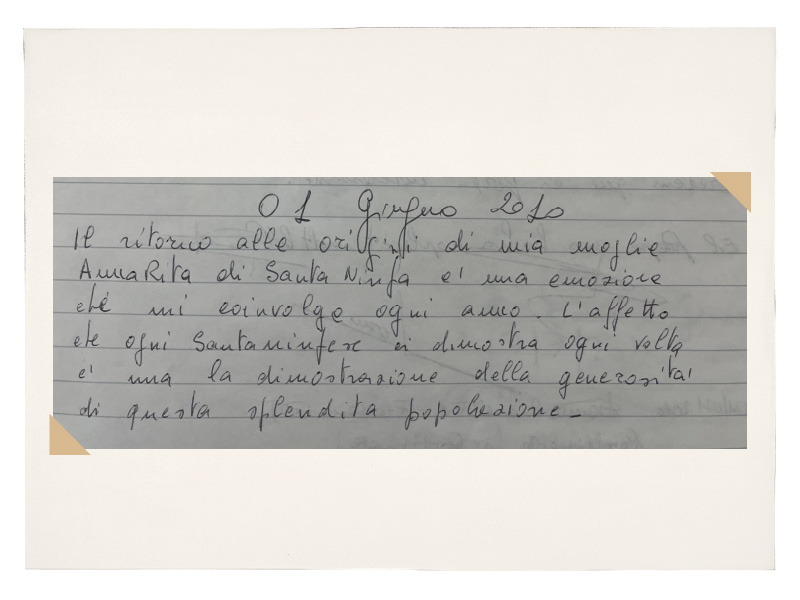 01 Giugno 2010
Il ritorno alle origini di mia moglie
AnnaRita di Santa Ninfa e' una emozione
che mi coinvolge ogni anno. L'affetto
che ogni Santaninfese ci dimostra ogni volta
e' una la dimostrazione della generosita'
di questa splendita popolazione_